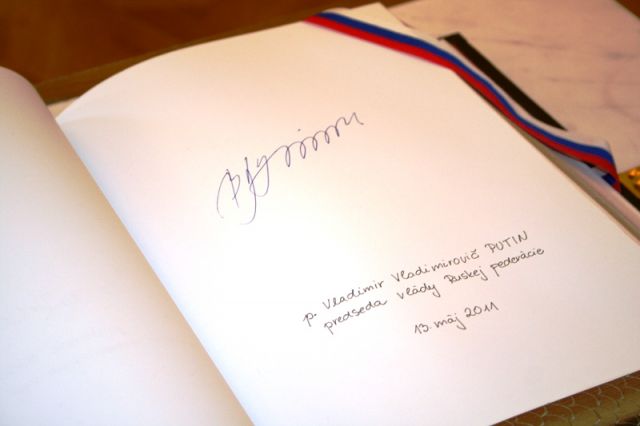 p. Vladimir Vladimirovič PUTIN
predseda vlády Ruskej federácie
13. máj 2011